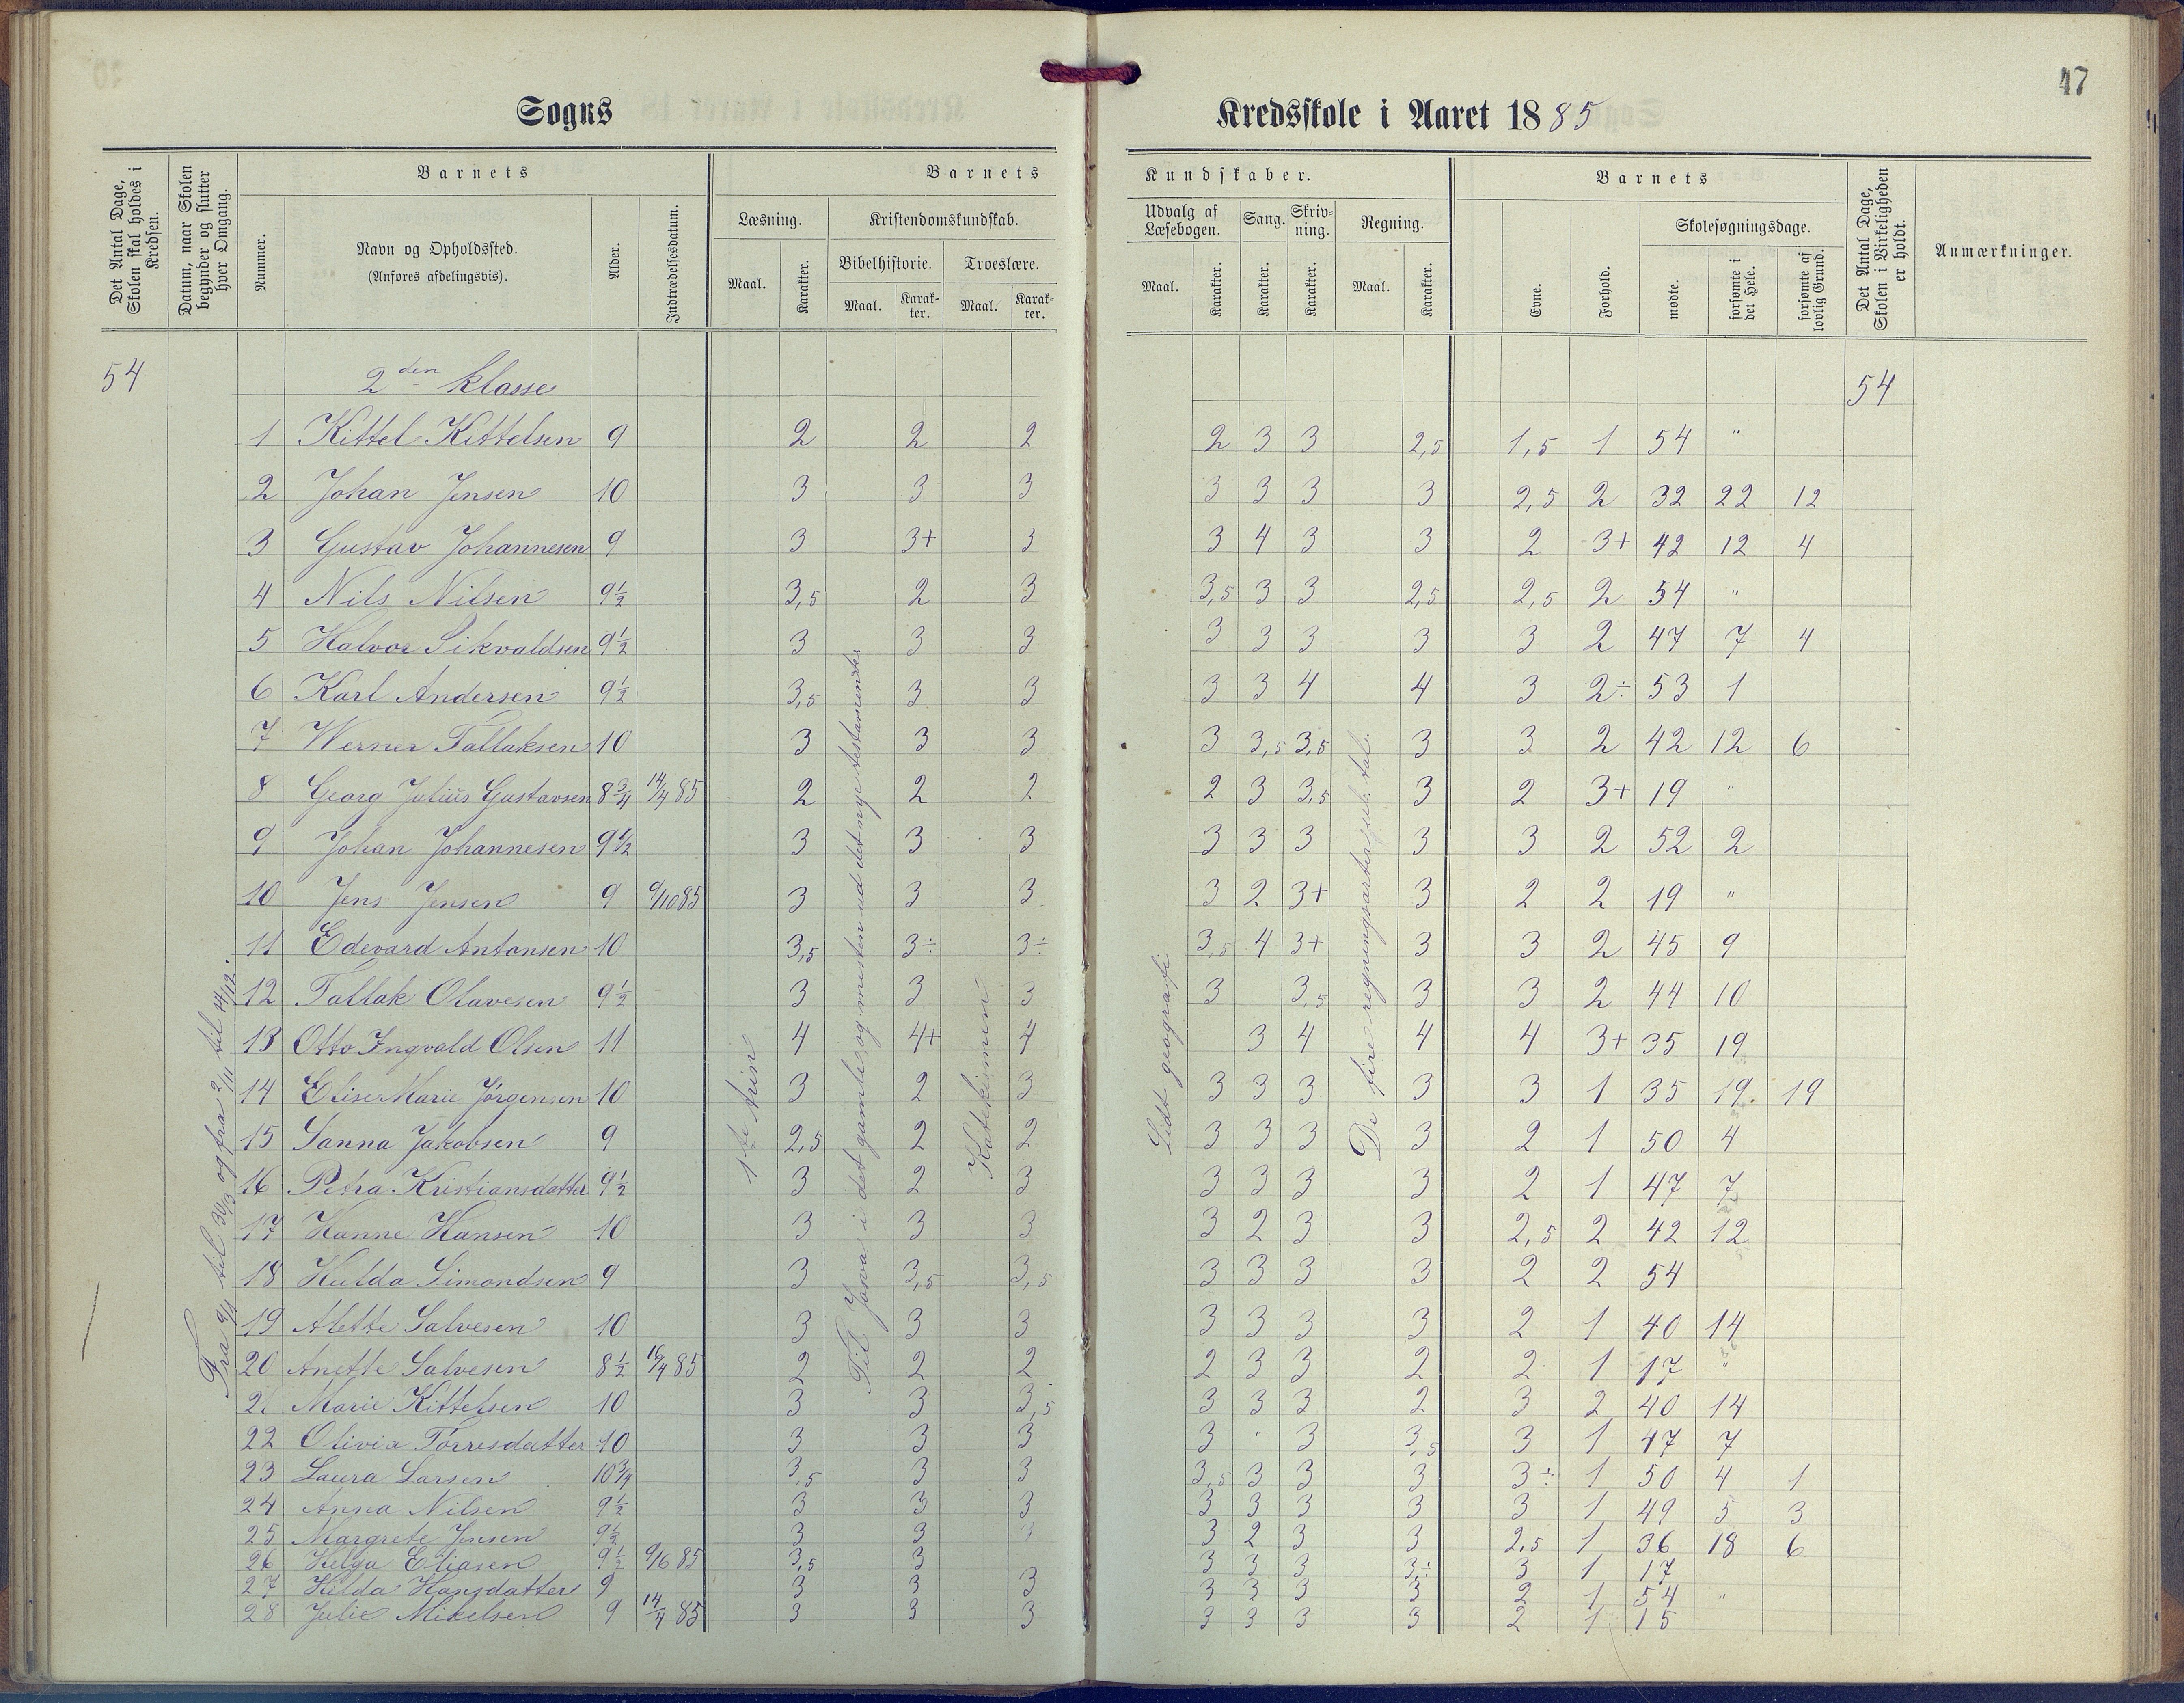 47
Sogns Kredsskole i Aaret 1885
Det Antal Dage, Skolen skal holdes i Kredsen.
Datum, naar Skolen begynder og slutter hver Omgang.
Barnets
Nummer.
Navn og Opholdssted.
(Anføres afdelingsvis).
Alder.
Indtrædelsesdatum.
Barnets Kundskaber.
Læsning.
Maal.
Karakter.
Kristendomskundskab.
Bibelhistorie.
Maal.
Karakter.
Troeslære.
Maal.
Karakter.
Udvalg af Læsebogen.
Maal.
Karakter.
Sang.
Karakter.
Skrivning.
Karakter.
Regning.
Maal.
Karakter.
Barnets
Evne.
Forhold.
Skolesøgningsdage.
mødte.
forsømte i det Hele.
forsømte af lovlig Grund.
Det Antal Dage, Skolen i Virkeligheden er holdt.
Anmærkninger.
54 2den klasse 54
1 Kittel Kittelsen 9 2 2 2 2 3 3 2,5 1,5 1 54 "
2 Johan Jensen 10 3 3 3 3 3 3 3 2,5 2 32 22 12
3 Gustav Johannesen 9 3 3+ 3 3 4 3 3 2 3+ 42 12 4
4 Nils Nilsen 9½ 3,5 2 3 3,5 3 3 2,5 2,5 2 54 "
5 Halvor Sikvaldsen 9½ 3 3 3 3 3 3 3 3 2 47 7 4
6 Karl Andersen 9½ 3,5 3 3 3 3 4 4 3 2÷ 53 1
7 Werner Tallaksen 10 3 3 3 3 3,5 3,5 3 3 2 42 12 6
8 Georg Julius Gustavsen 8¾ 14/4 85 2 2 2 2 3 3,5 3 2 3+ 19 "
9 Johan Johannesen 9½ 3 3 3 3 3 3 3 3 2 52 2
10 Jens Jensen 9 9/10 85 3 3 3 3 2 3+ 3 2 2 19 "
11 Edevard Antonsen 10 3,5 3÷ 3÷ 3,5 4 3+ 3 3 2 45 9
12 Tallak Olavesen 9½ 3 3 3 3 3,5 3 3 2 44 10
13 Otto Ingvald Olsen 11 4 4+ 4 3 4 4 4 3+ 35 19
14 Elise Marie Jørgensen 10 3 2 3 3 3 3 3 3 1 35 19 19
15 Sanna Jakobsen 9 2,5 2 2 3 3 3 3 2 1 50 4
16 Petra Kristiansdatter 9½ 3 2 3 3 3 3 3 2 1 47 7
17 Hanne Hansen 10 3 3 3 3 2 3 3 2,5 2 42 12
18 Hulda Simondsen 9 3 3,5 3,5 3 3 3 3 2 2 54
19 Alette Salvesen 10 3 3 3 3 3 3 3 2 1 40 14
20 Anette Salvesen 8½ 16/4 85 2 2 2 2 3 3 2 2 1 17 "
2. Marie Kittelsen 10 3 3 3,5 3 3 3 2 3 2 40 14
22 Olivia Torresdatter 10 3 3 3 3 " 3 3,5 3 1 47 7
23 Laura Larsen 10¾ 3,5 3 3 3,5 3 3 3 3÷ 1 50 4 1
24 Anna Nilsen 9½ 3 3 3 3 3 3 3 3 1 49 5 3
25 Margrete Jensen 9½ 3 3 3 3 2 3 3 2,5 1 36 18 6
26 Helga Eliasen 9½ 9/6 85 3,5 3 3 3 3 3÷ 3 1 17
27 Hilda Hansdatter 9 3 3 3 3 3 3 3 2 1 54 "
28 Julie Mikelsen 9 14/4 85 3 3 3 3 3 3 3 2 1 15
Fra 9/1 til 30/3 og fra 2/11 til 14/12.
1ste trin
Til Josva i det gamle, og mesten ud det nye testamente
Katekismen
Lidt geografi
De fire regningsarter tal.